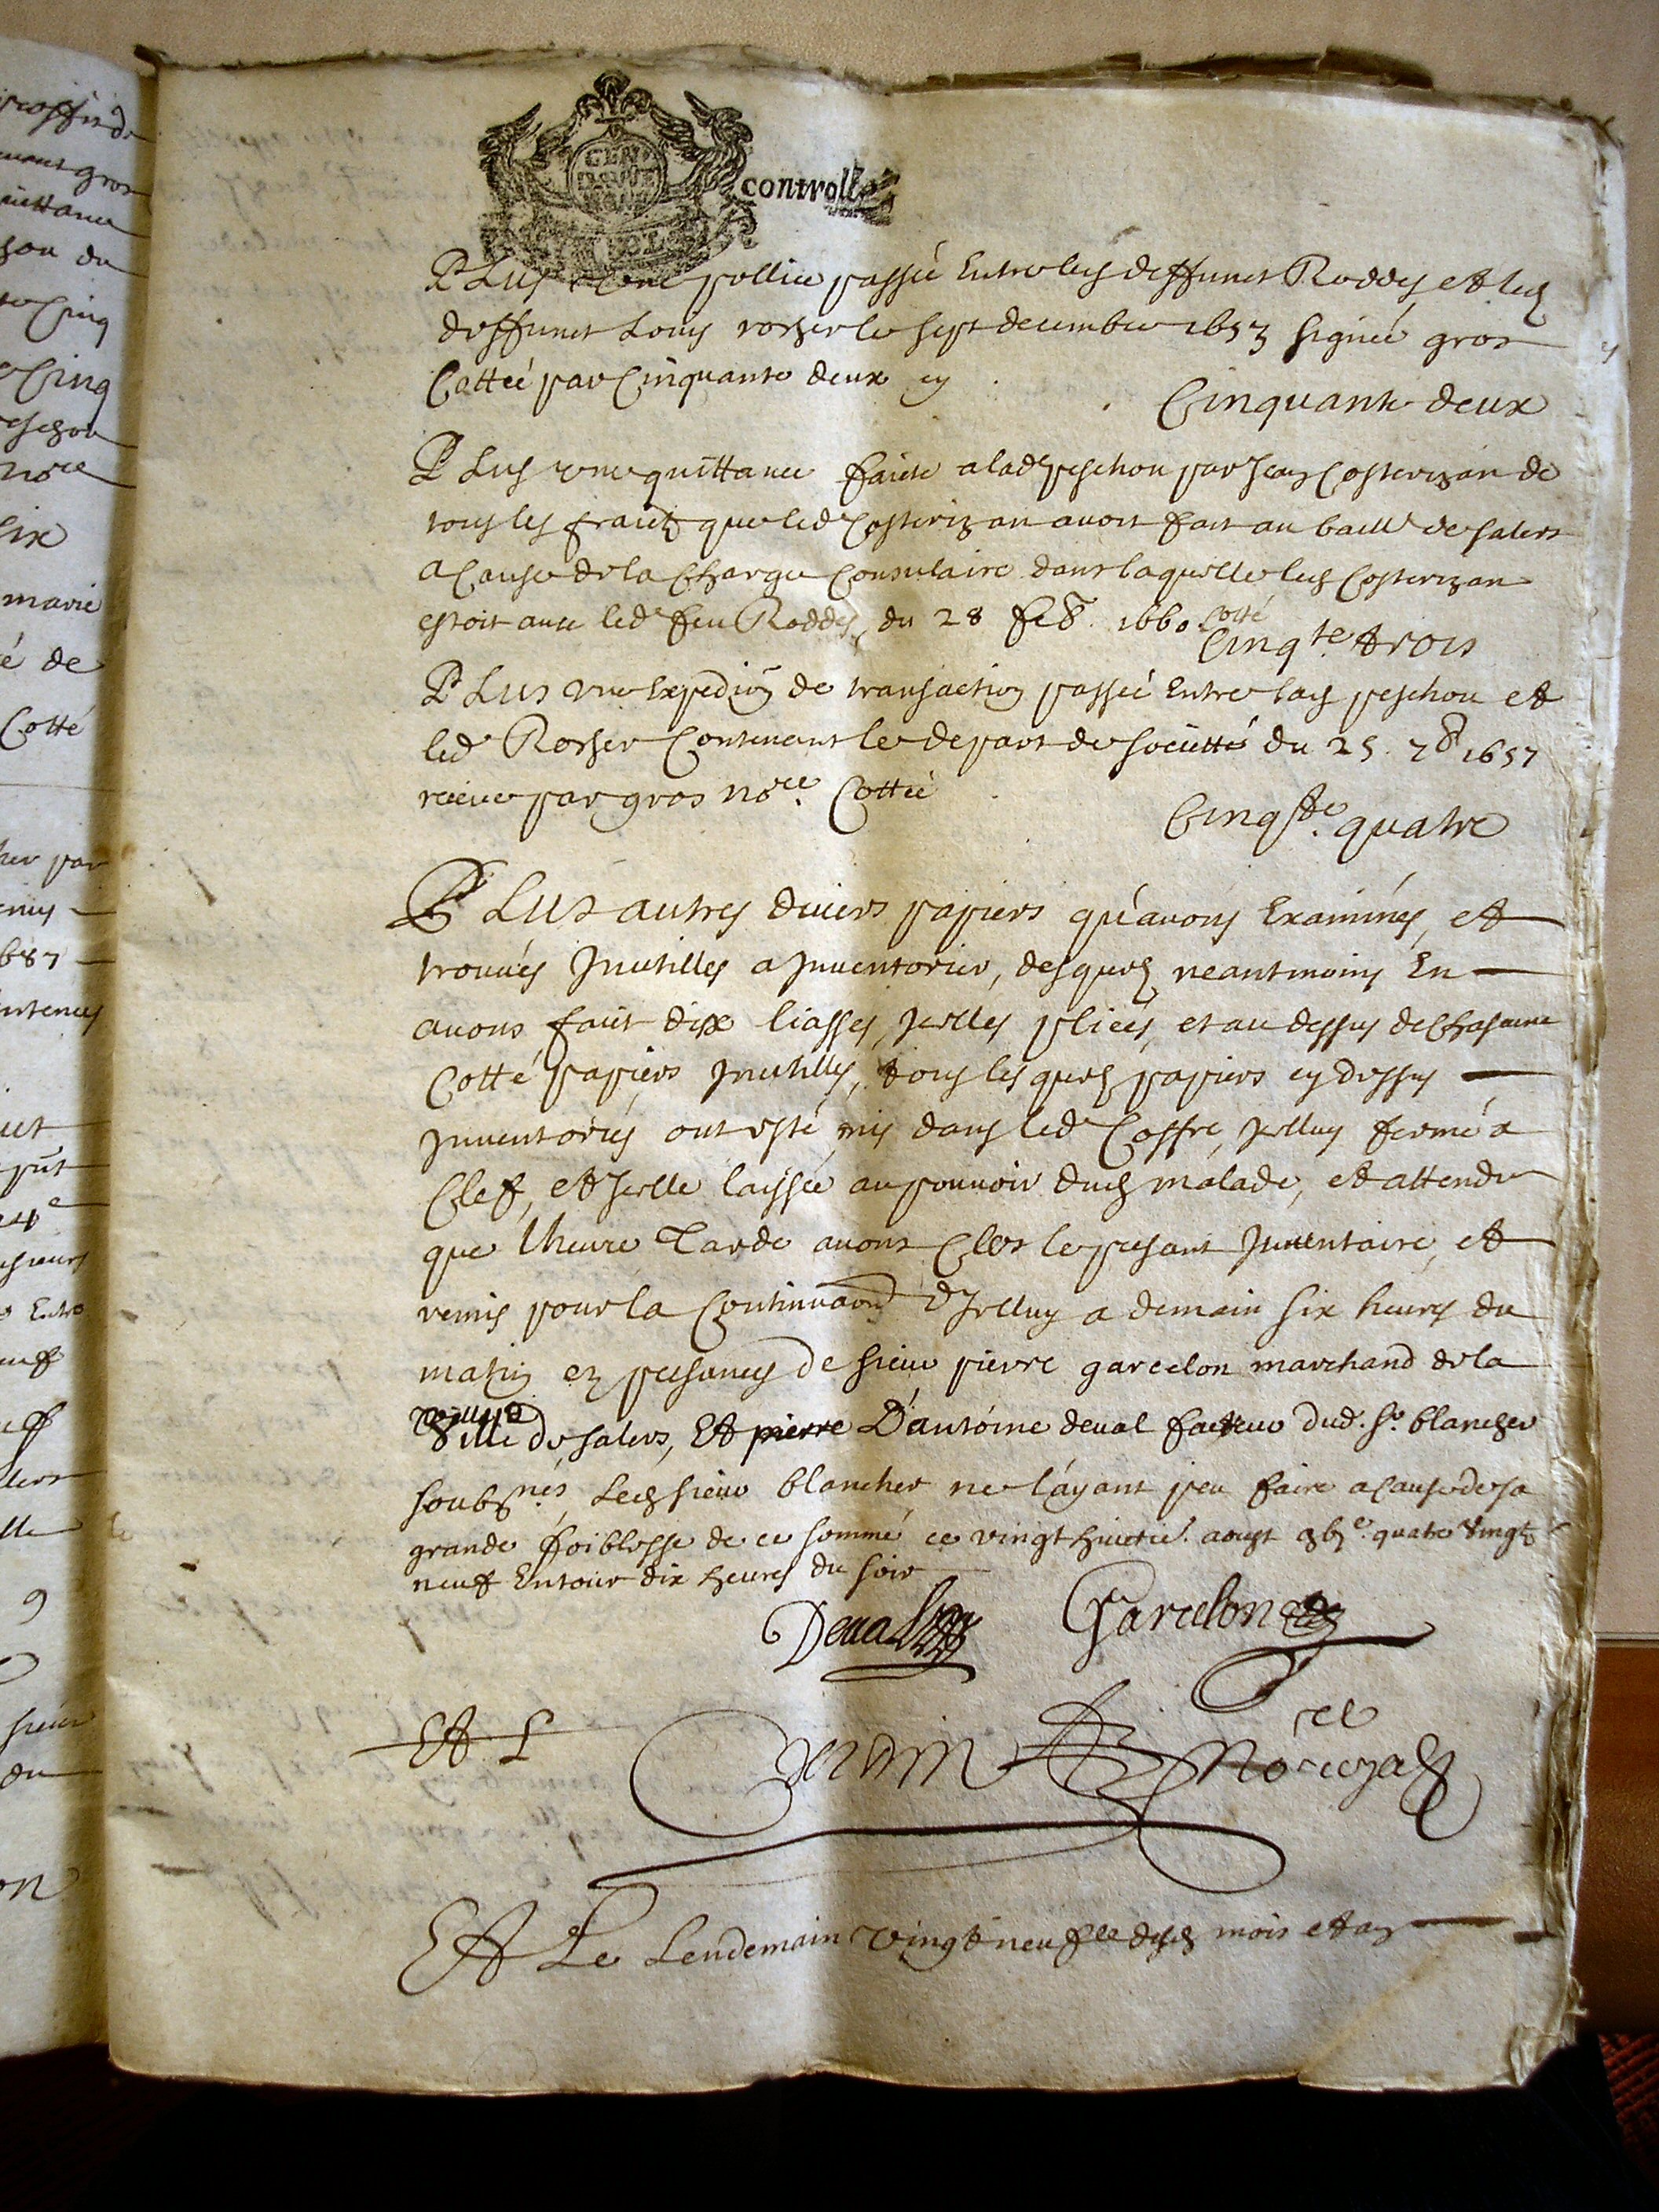 CEN
controllé
PLus une pollice passée Entre lesd deffunct Roddes et led
deffunct Louis rosier le sept decembre 1653 signée gros
Cottée par Cinquante deux cy
Cinquante deux
PLus une quittance faicte a lad peschon par Jean Costerizan de
tous les fraictz que led Costerizan avoit fait au baill de salers
a Cause de la Charge Consulaire dans laquelle led Costerizan
estoit avec led feu Roddes, du 28 feb. 1660. cotté
Cinqte trois
PLus une Expedion de transaction passée Entre lad peschon et
led Rosier Contenant le depart de sociétté du 25. 7b 1657
receue par gros nore. Cottée
Cinqte. quatre
PLus autres divers papiers qu'avons Examinés, et
trouvés Inutilles a Inventorier, desquels neantmoins En
avons fait dix liasses, Icelles pliées, et au dessus de Chascune
Cotté papiers Inutilles, tous lesquels papiers cy dessus
Inventoriés ont esté mis dans led Coffre, Icelluy fermé a
Clef, et Icelle laissée au pouvoir dud malade, et attendu
que lheure Tarde avons Clos le presant Inventaire, et
remis pour la Continuaon d'Icelluy a demain six heures du
matin en presances de sieur pierre garcelon marchand de la
ville
Ville de salers, Et pierre D'antoine deval facteur dud. sr. blancher
soubsnés, Led sieur blancher ne l'ayant peu faire a cause de sa
grande foiblesse de ce sommé ce vingt huictie. aoust 16c. quatre Vingtz
neuf Entour dix heures du soir
Deval
Garcelon
Et L
nore royal
Et Le Lendemain vingt neufie desd mois et an
proffit de
gros
quittance
Cinq
Cinq
peschon
nore
six
marie
é de
Cotté
par
Entre
neuf
sieur
du